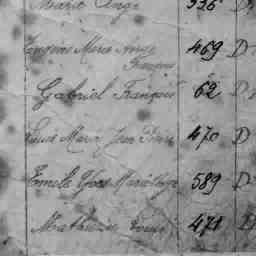 Marie Ange 336 D
Eugène Marie Ange 469 D
François
Gabriel François 62 D
Louis Marie Jean Pierre 470 D
Emile Yves Marie 589 D
Mathurin Louis 471 D